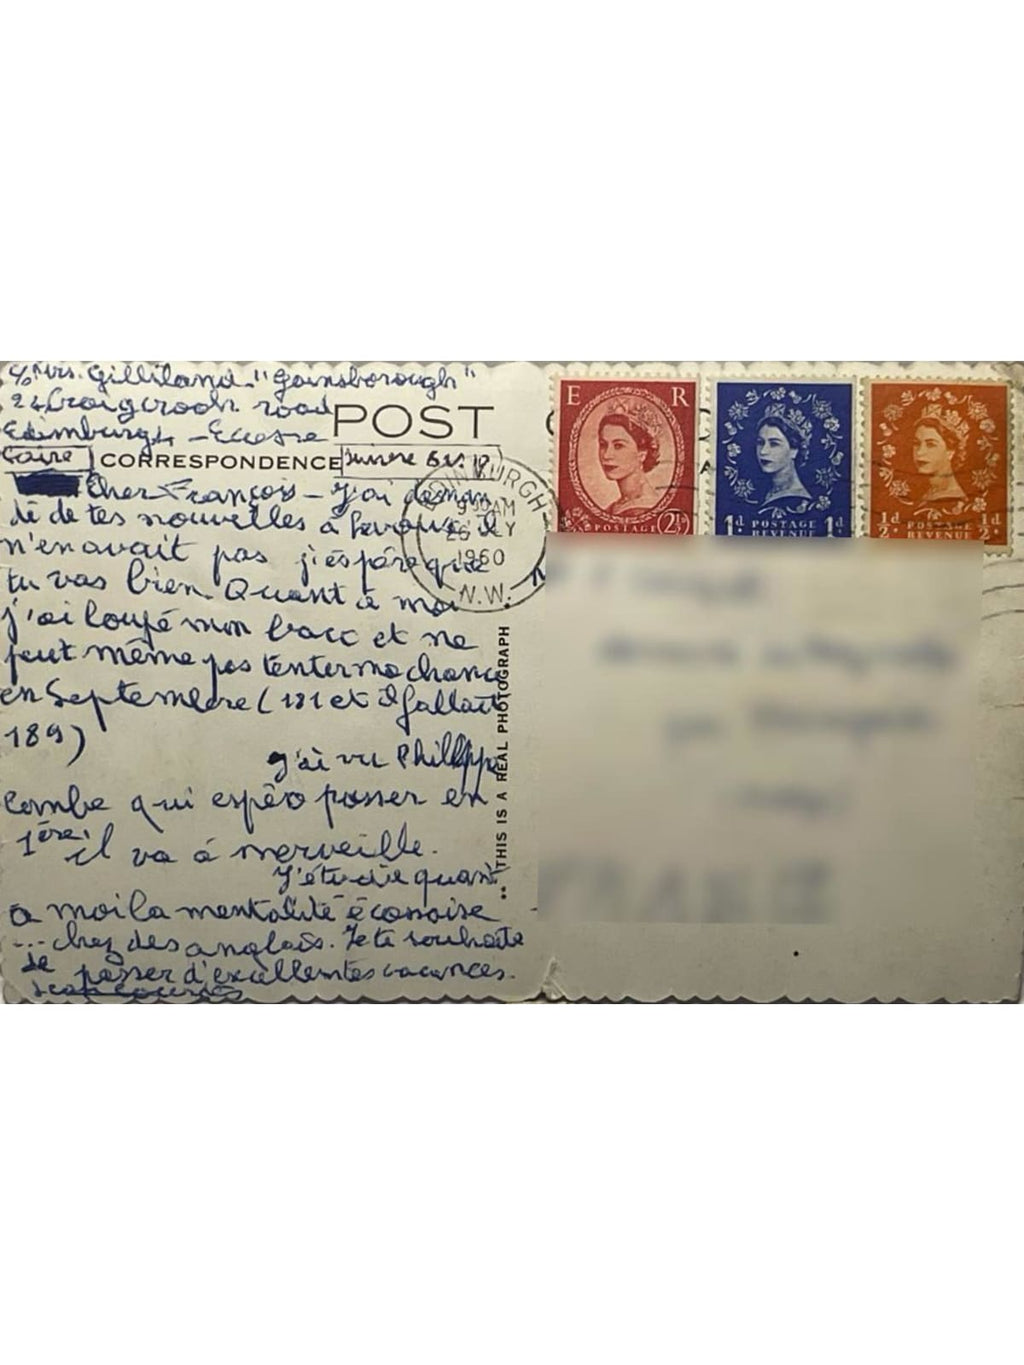 c/o Mrs. Gilliland "Gainsborough"
24 Craigcrook road
Edimburgh - Ecosse
POST
Faire suivre S.V.P
CORRESPONDENCE
Cher François - J'ai deman
dé de tes nouvelles à il
n'en avait pas j'espère que
tu vas bien. Quant à moi
j'ai loupé mon bacc et ne
peut même pas tenter ma chance
en Septembre (181 et il fallait
189)
J'ai vu Philippe
Combe qui espère passer en
1ère. il va à merveille.
J'étudie quant
à moi la mentalité écossaise
... chez des anglais. Je te souhaite
de passer d'excellentes vacances.
EDINBURGH
9 30 AM
1960
N.W.
THIS IS A REAL PHOTOGRAPH
E R
POSTAGE 2½d
1d POSTAGE REVENUE 1d
½d POSTAGE REVENUE ½d